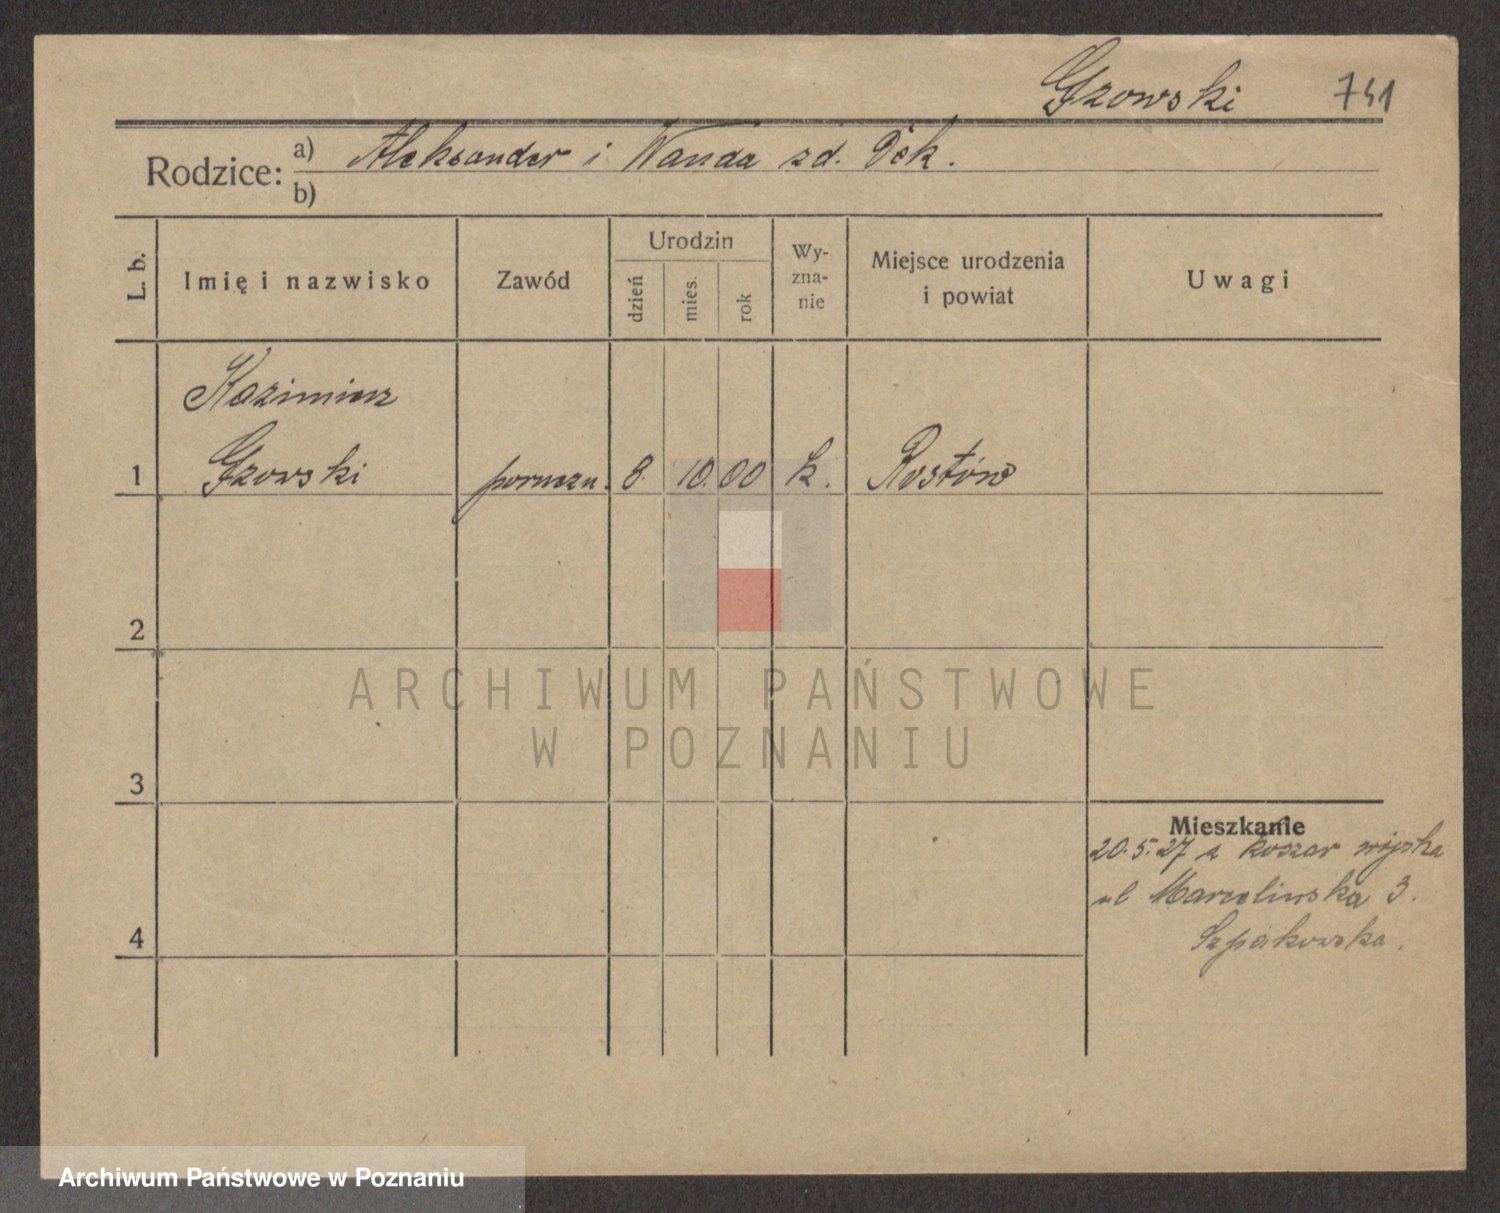 Gzowski 741
Rodzice: a) Aleksander i Wanda zd. Pèk.
b)
L. b.
Imię i nazwisko
Zawód
Urodzin
dzień
mies.
rok
Wy-
zna-
nie
Miejsce urodzenia
i powiat
Uwagi
Kazimierz
1 Gzowski poruczn. 8. 10. 00 k. Rostów
2
3
4
Mieszkanie
20.5.27 z koszar wojska
ul Marcelinska 3.
Szpakowska.
ARCHIWUM PAŃSTWOWE
W POZNANIU
Archiwum Państwowe w Poznaniu